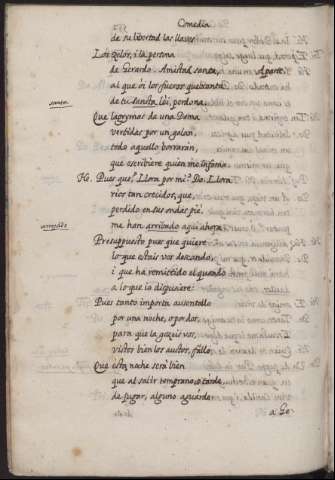 Comedia
de su libertad las llaves
Leticilor, i la persona
de Gerardo. Amistad santa, Aparte.
al que os los fueros quebranta
santa
de tu santa lei, perdona.
Que lagrymas de una Dama
vertidas por un galan
todo aquello borrarán,
que escribiere quien me infama
He. Pues que? Llora por mi? Do. Llora
rios tan crecidos, que,
perdido en sus ondas pie,
arrojado
me han arrojado aqui ahora
Presuppuesto pues que quiere
lo que estais vos deseando,
i que ha remittido el quando
a lo que io dispusiere:
Pues tanto importa ausentallo
por una noche, o por dos,
para que la goceis vos,
vistos bien los auctos, fallo
Que esta noche será bien
que al salir temprano, o tarde
de jugar, alguno aguarde
a Ge